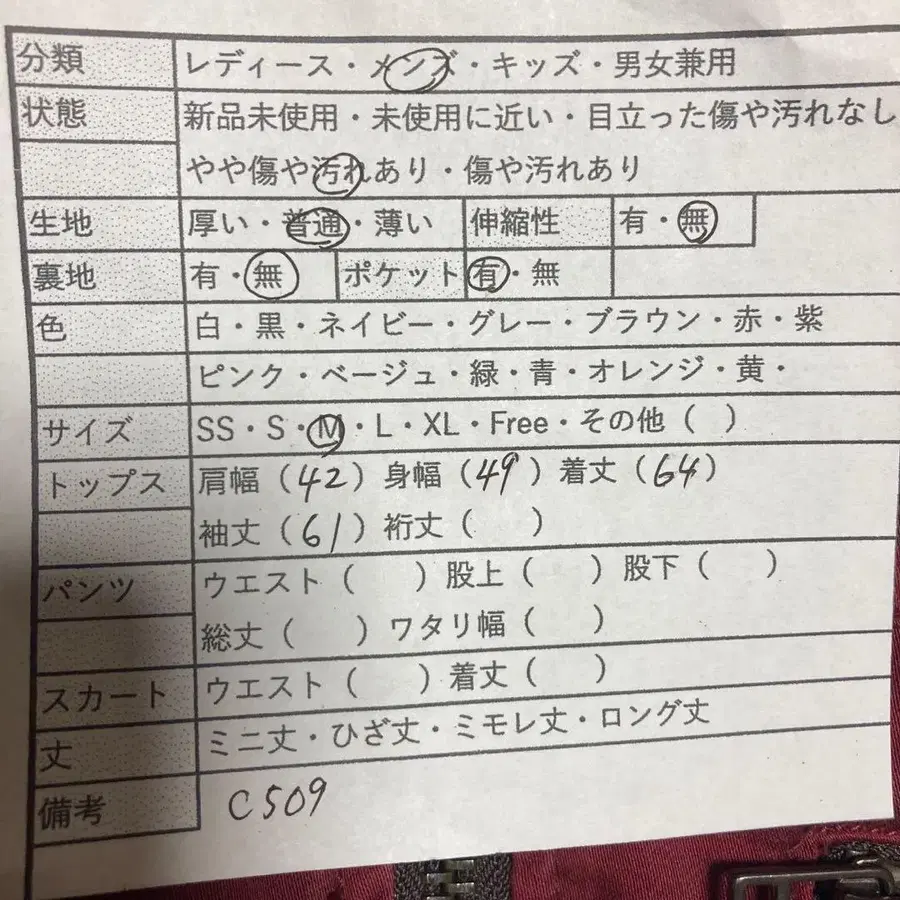 分類 レディース・メンズ・キッズ・男女兼用
状態 新品未使用・未使用に近い・目立った傷や汚れなし
やや傷や汚れあり・傷や汚れあり
生地 厚い・普通・薄い 伸縮性 有・無
裏地 有・無 ポケット 有・無
色 白・黒・ネイビー・グレー・ブラウン・赤・紫
ピンク・ベージュ・緑・青・オレンジ・黄・
サイズ SS・S・M・L・XL・Free・その他（ ）
トップス 肩幅（42）身幅（49）着丈（64）
袖丈（61）裄丈（ ）
パンツ ウエスト（ ）股上（ ）股下（ ）
総丈（ ）ワタリ幅（ ）
スカート ウエスト（ ）着丈（ ）
丈 ミニ丈・ひざ丈・ミモレ丈・ロング丈
備考 C509